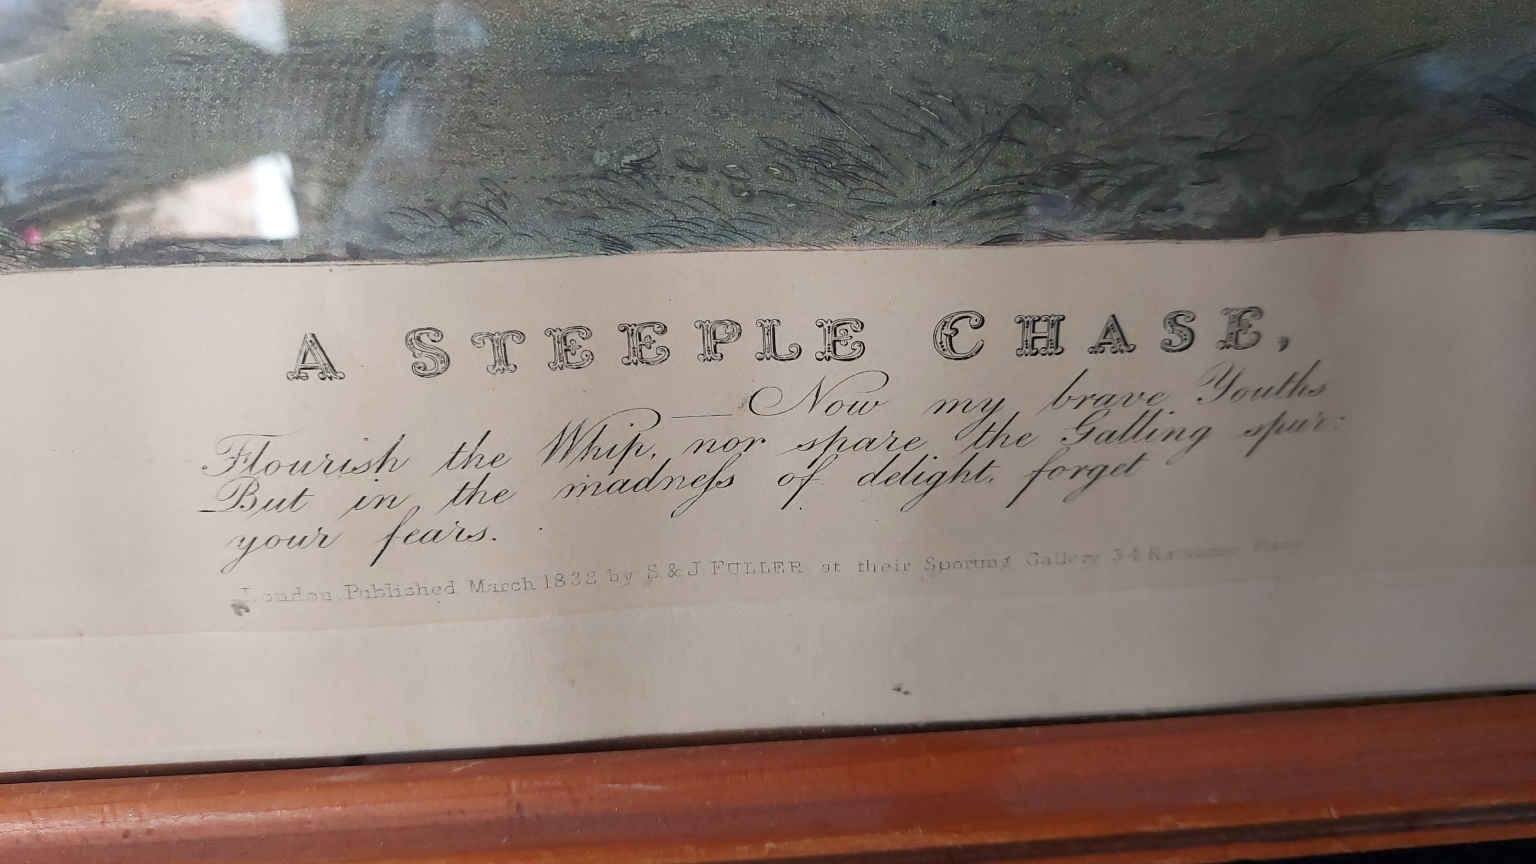 A STEEPLE CHASE,
— Now my brave Youths
Flourish the Whip, nor spare the Galling spur:
But in the madneſs of delight, forget
your fears.
London Published March 1832 by S & J FULLER at their Sporting Gallery 34